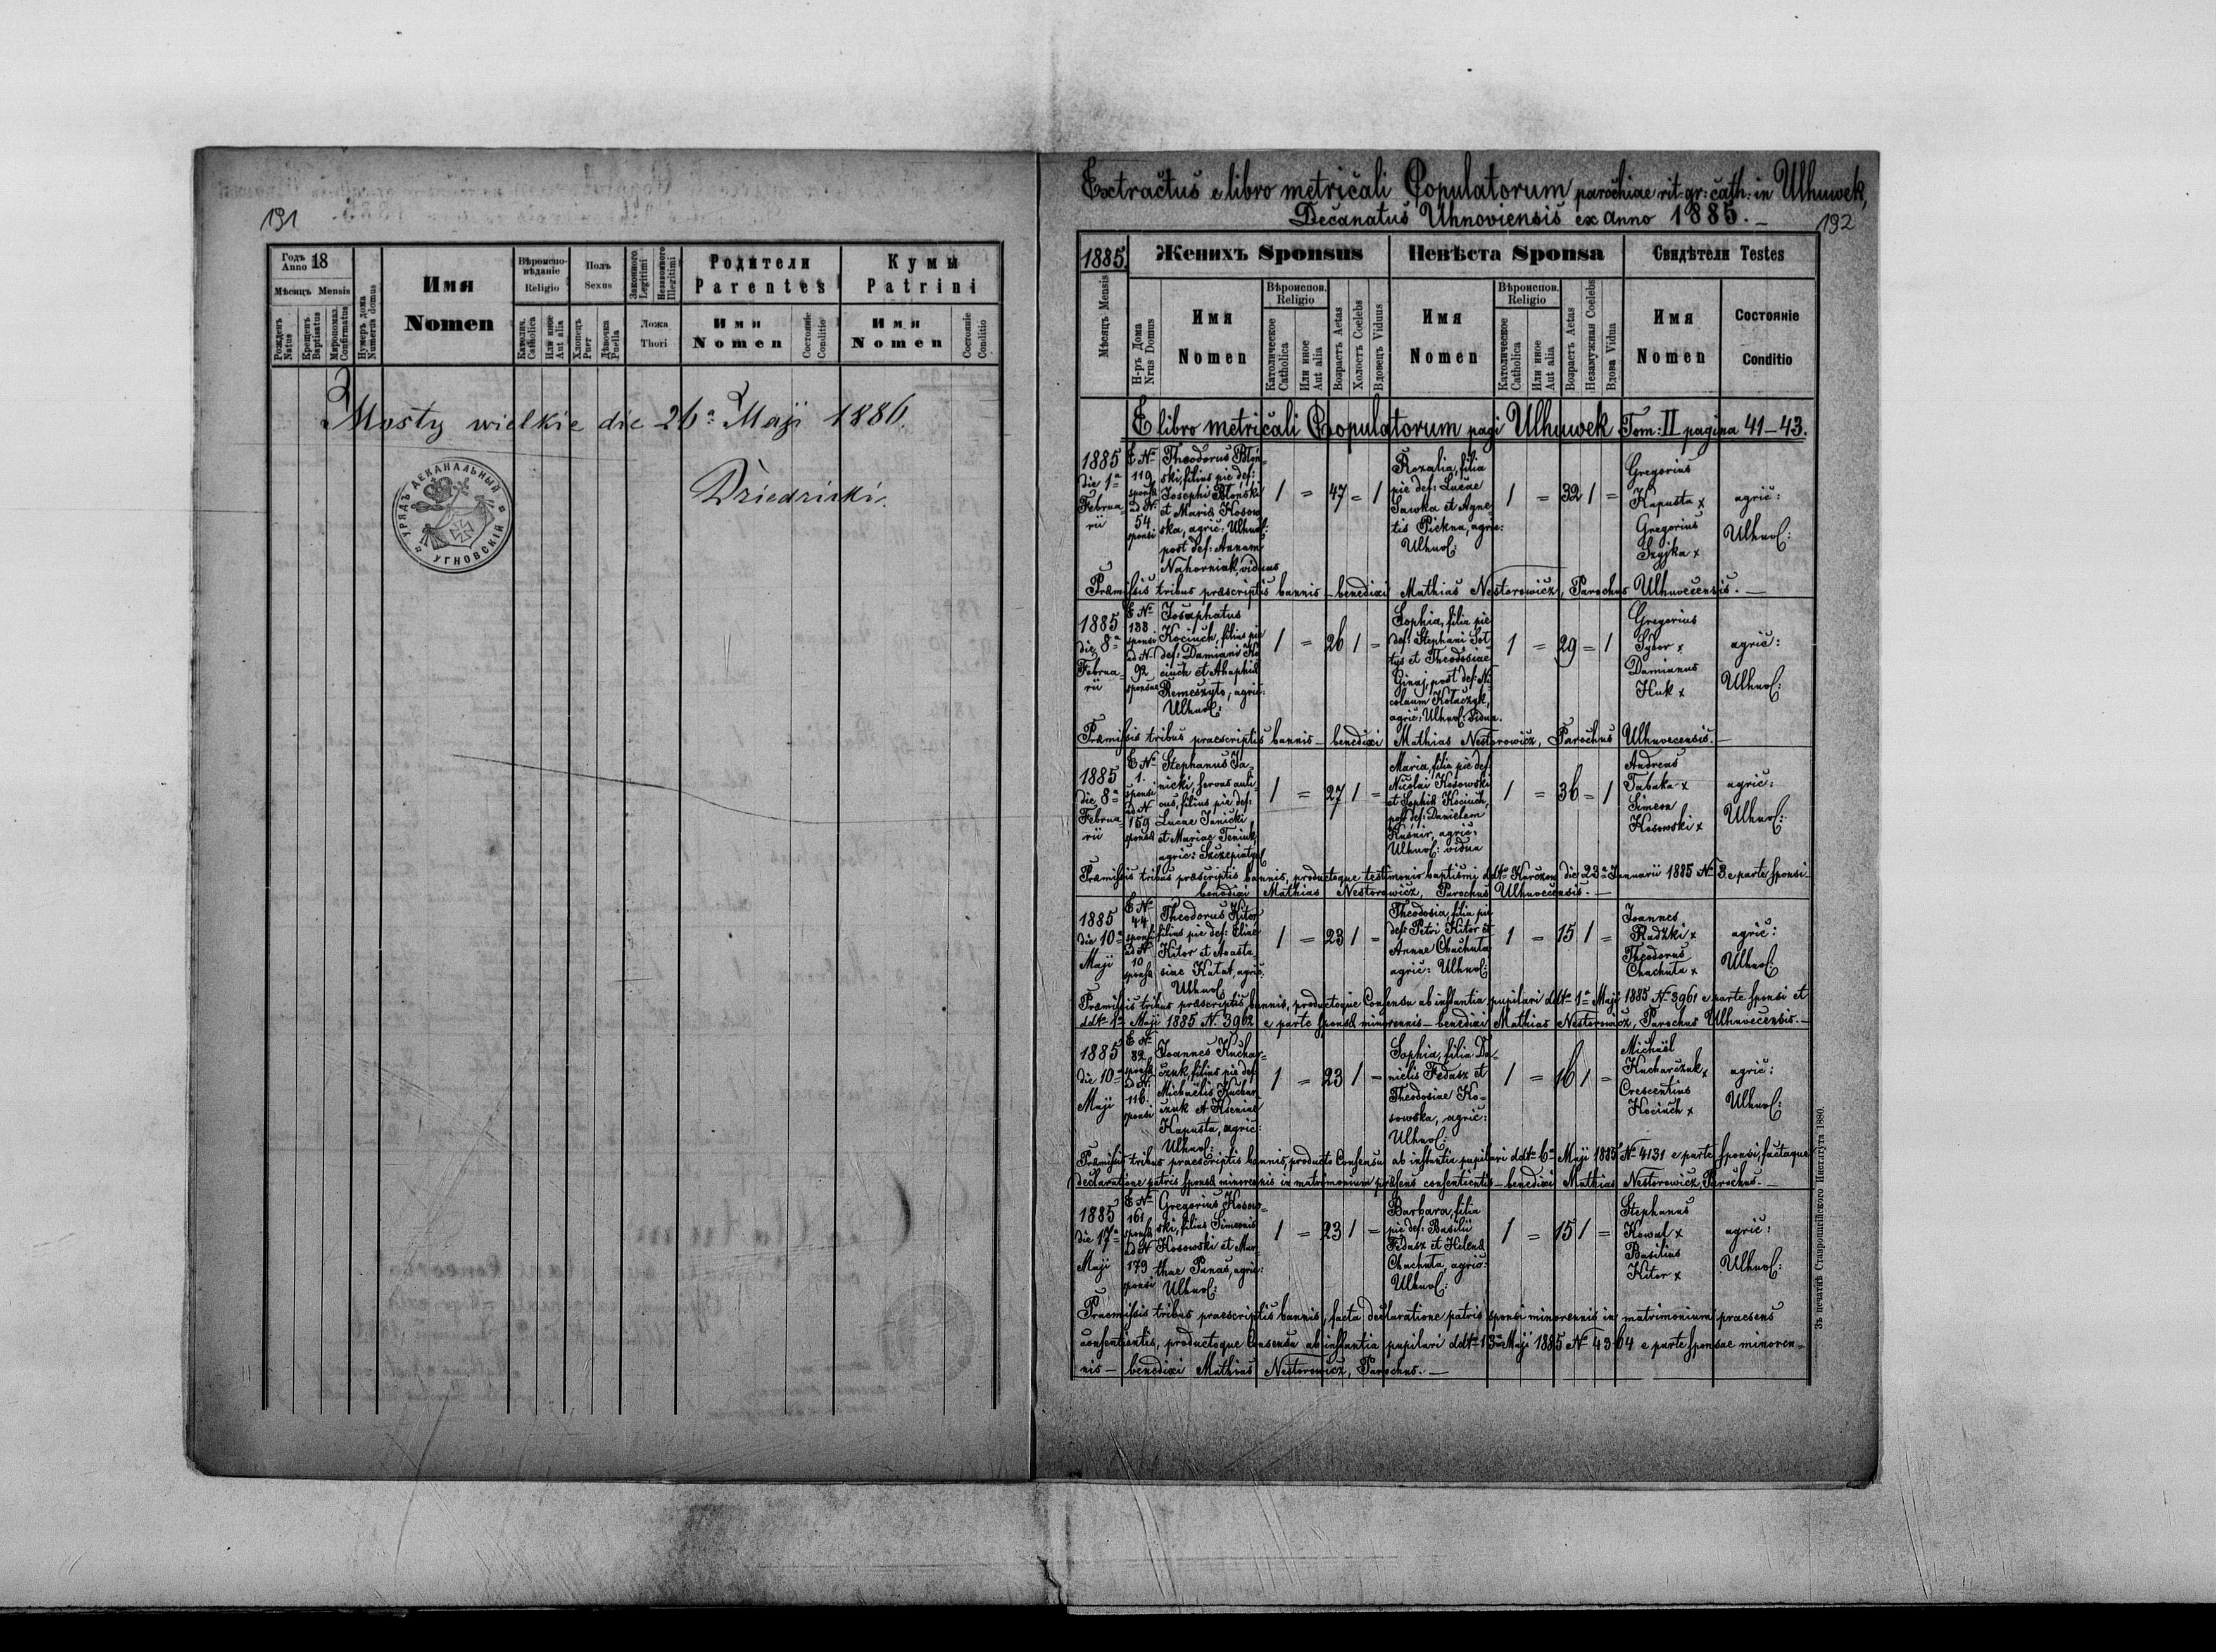 191
Годъ Anno 18
Мѣсяцъ Mensis
Рожденъ Natus
Крещенъ Baptisatus
Миропомаз. Confirmatus
Нумеръ дома Numerus domus
Имя
Nomen
Вѣроиспо-
вѣданіе
Religio
Католич. Catholica
Или иное Aut alia
Полъ
Sexus
Хлопецъ Puer
Дѣвочка Puella
Законного Legitimi
Незаконного Illegitimi
Ложа
Thori
Родители
Parentes
Имя
Nomen
Состояніе Conditio
Кумы
Patrini
Имя
Nomen
Состояніе Conditio
Mosty wielkie die 26a Maji 1886.
УРЯДЪ ДЕКАНАЛЬНЫЙ
УГНОВСКІЙ
Dziedzicki.
Extractus e libro metricali Copulatorum parochiae rit: gr: cath: in Ulhuwek,
Decanatus Uhnoviensis ex anno 1885. —
192
1885.
Мѣсяцъ Mensis
Женихъ Sponsus
Н-ръ Дома Nrus Domus
Имя
Nomen
Вѣроиспов.
Religio
Католическое Catholica
Или иное Aut alia
Возрастъ Aetas
Холостъ Coelebs
Вдовецъ Viduus
Невѣста Sponsa
Имя
Nomen
Вѣроиспов.
Religio
Католическое Catholica
Или иное Aut alia
Возрастъ Aetas
Незамужная Coelebs
Вдова Vidua
Свидѣтели Testes
Имя
Nomen
Состояніе
Conditio
E libro metricali Copulatorum pagi Ulhuwek Tom: II pagina 41–43.
1885
die 1a
Februa-
rii
E No
119
sponsæ
ad N.
54
sponsi
Theodorus Błoń-
ski, filius pie def:
Josephi Błoński
et Mariæ Kosow-
ska, agric: Ulhuv:
post def: Annam
Nahorniak, viduus
1 = 47 = 1
Rozalia, filia
pie def: Lucae
Sawka et Agne-
tis Piekna, agric:
Ulhuv:
1 = 32 1 =
Gregorius
Kapusta x
Gregorius
Szyjka x
agric:
Ulhuv:
Præmissis tribus præscriptis bannis – benedixi Mathias Nestorowicz, Parochus Ulhuvecensis. —
1885
die 8a
Februa-
rii
E No
188
sponsi
ad N.
92
sponsae
Josaphatus
Kociuch, filius pie
def: Damiani Ko-
ciuch et Ahaphiæ
Remeszyto, agric:
Ulhuv:
1 = 26 1 =
Sophia, filia pie
def: Stephani Soł-
tys et Theodosiae
Ginaj, post def: Ni-
colaum Kołaczyk,
agric: Ulhuv: vidua.
1 = 29 = 1
Gregorius
Sydor x
Damianus
Huk x
agric:
Ulhuv:
Præmissis tribus praescriptis bannis – benedixi Mathias Nestorowicz, Parochus Ulhuvecensis. —
1885
die 8a
Februa-
rii
E No
1.
sponsi
ad N.
159
sponsæ
Stephanus Ja-
nicki, servus auli-
cus, filius pie def:
Lucae Janicki
et Mariae Teniuk,
agric: Szczepiatyn
1 = 27 1 =
Maria, filia pie def:
Nicolai Kosowski
et Sophiæ Kociuch,
post def: Danielem
Kusnir, agric:
Ulhuv: vidua
1 = 36 = 1
Andreas
Tabaka x
Simeon
Kosowski x
agric:
Ulhuv:
Præmissis tribus præscriptis bannis, productoque testimonio baptismi ddto Korczow die 23a Januarii 1885 No 3 e parte sponsi –
benedixi Mathias Nestorowicz, Parochus Ulhuvecensis. —
1885
die 10a
Maji
E No
44
sponsi
ad N
10
sponsæ
Theodorus Kitor
filius pie def: Eliae
Kitor et Anasta-
siae Hutat, agric:
Ulhuv:
1 = 23 1 =
Theodosia, filia pie
def: Petri Kitor et
Annae Chachuta
agric: Ulhuv:
1 = 15 1 =
Joannes
Radzki x
Theodorus
Chachuta x
agric:
Ulhuv:
Præmissis tribus præscriptis bannis, productoque Consensu ab instantia pupilari ddto 1a Maji 1885 No 3961 e parte sponsi et
ddto 1a Maji 1885 N. 3962 e parte sponsæ minorennis – benedixi Mathias Nestorowicz, Parochus Ulhuvecensis. —
1885
die 10a
Maji
E No
82
sponsæ
ad N.
116
sponsi
Joannes Kuchar-
czuk, filius pie def:
Michaëlis Kuchar-
czuk et Kseniae
Kapusta, agric:
Ulhuv:
1 = 23 1 =
Sophia, filia Da-
nielis Fedasz et
Theodosiae Ko-
sowska, agric:
Ulhuv:
1 = 16 1 =
Michaël
Kucharczuk x
Crescentius
Kociuch x
agric:
Ulhuv:
Præmissis tribus praescriptis bannis, producto Consensu ab instantia pupilari ddto 6a Maji 1885 No 4131 e parte sponsi, factaque
declaratione patris sponsæ minorennis in matrimonium præsens consentientis – benedixi Mathias Nestorowicz, Parochus. —
1885
die 17a
Maji
E No
161
sponsæ
ad N
179
sponsi
Gregorius Kosow-
ski, filius Simeonis
Kosowski et Mar-
thae Panas, agric:
Ulhuv:
1 = 23 1 =
Barbara, filia
pie def: Basilii
Fedasz et Helenæ
Chachuta, agric:
Ulhuv:
1 = 15 1 =
Stephanus
Kowal x
Basilius
Kitor x
agric:
Ulhuv:
Praemissis tribus praescriptis bannis, facta declaratione patris sponsi minorennis in matrimonium praesens
consentientis, productoque Consensu ab instantia pupilari ddto 13a Maji 1885 No 4364 e parte sponsae minoren-
nis – benedixi Mathias Nestorowicz, Parochus. —
Зъ печатнѣ Ставропигійского Института 1880.